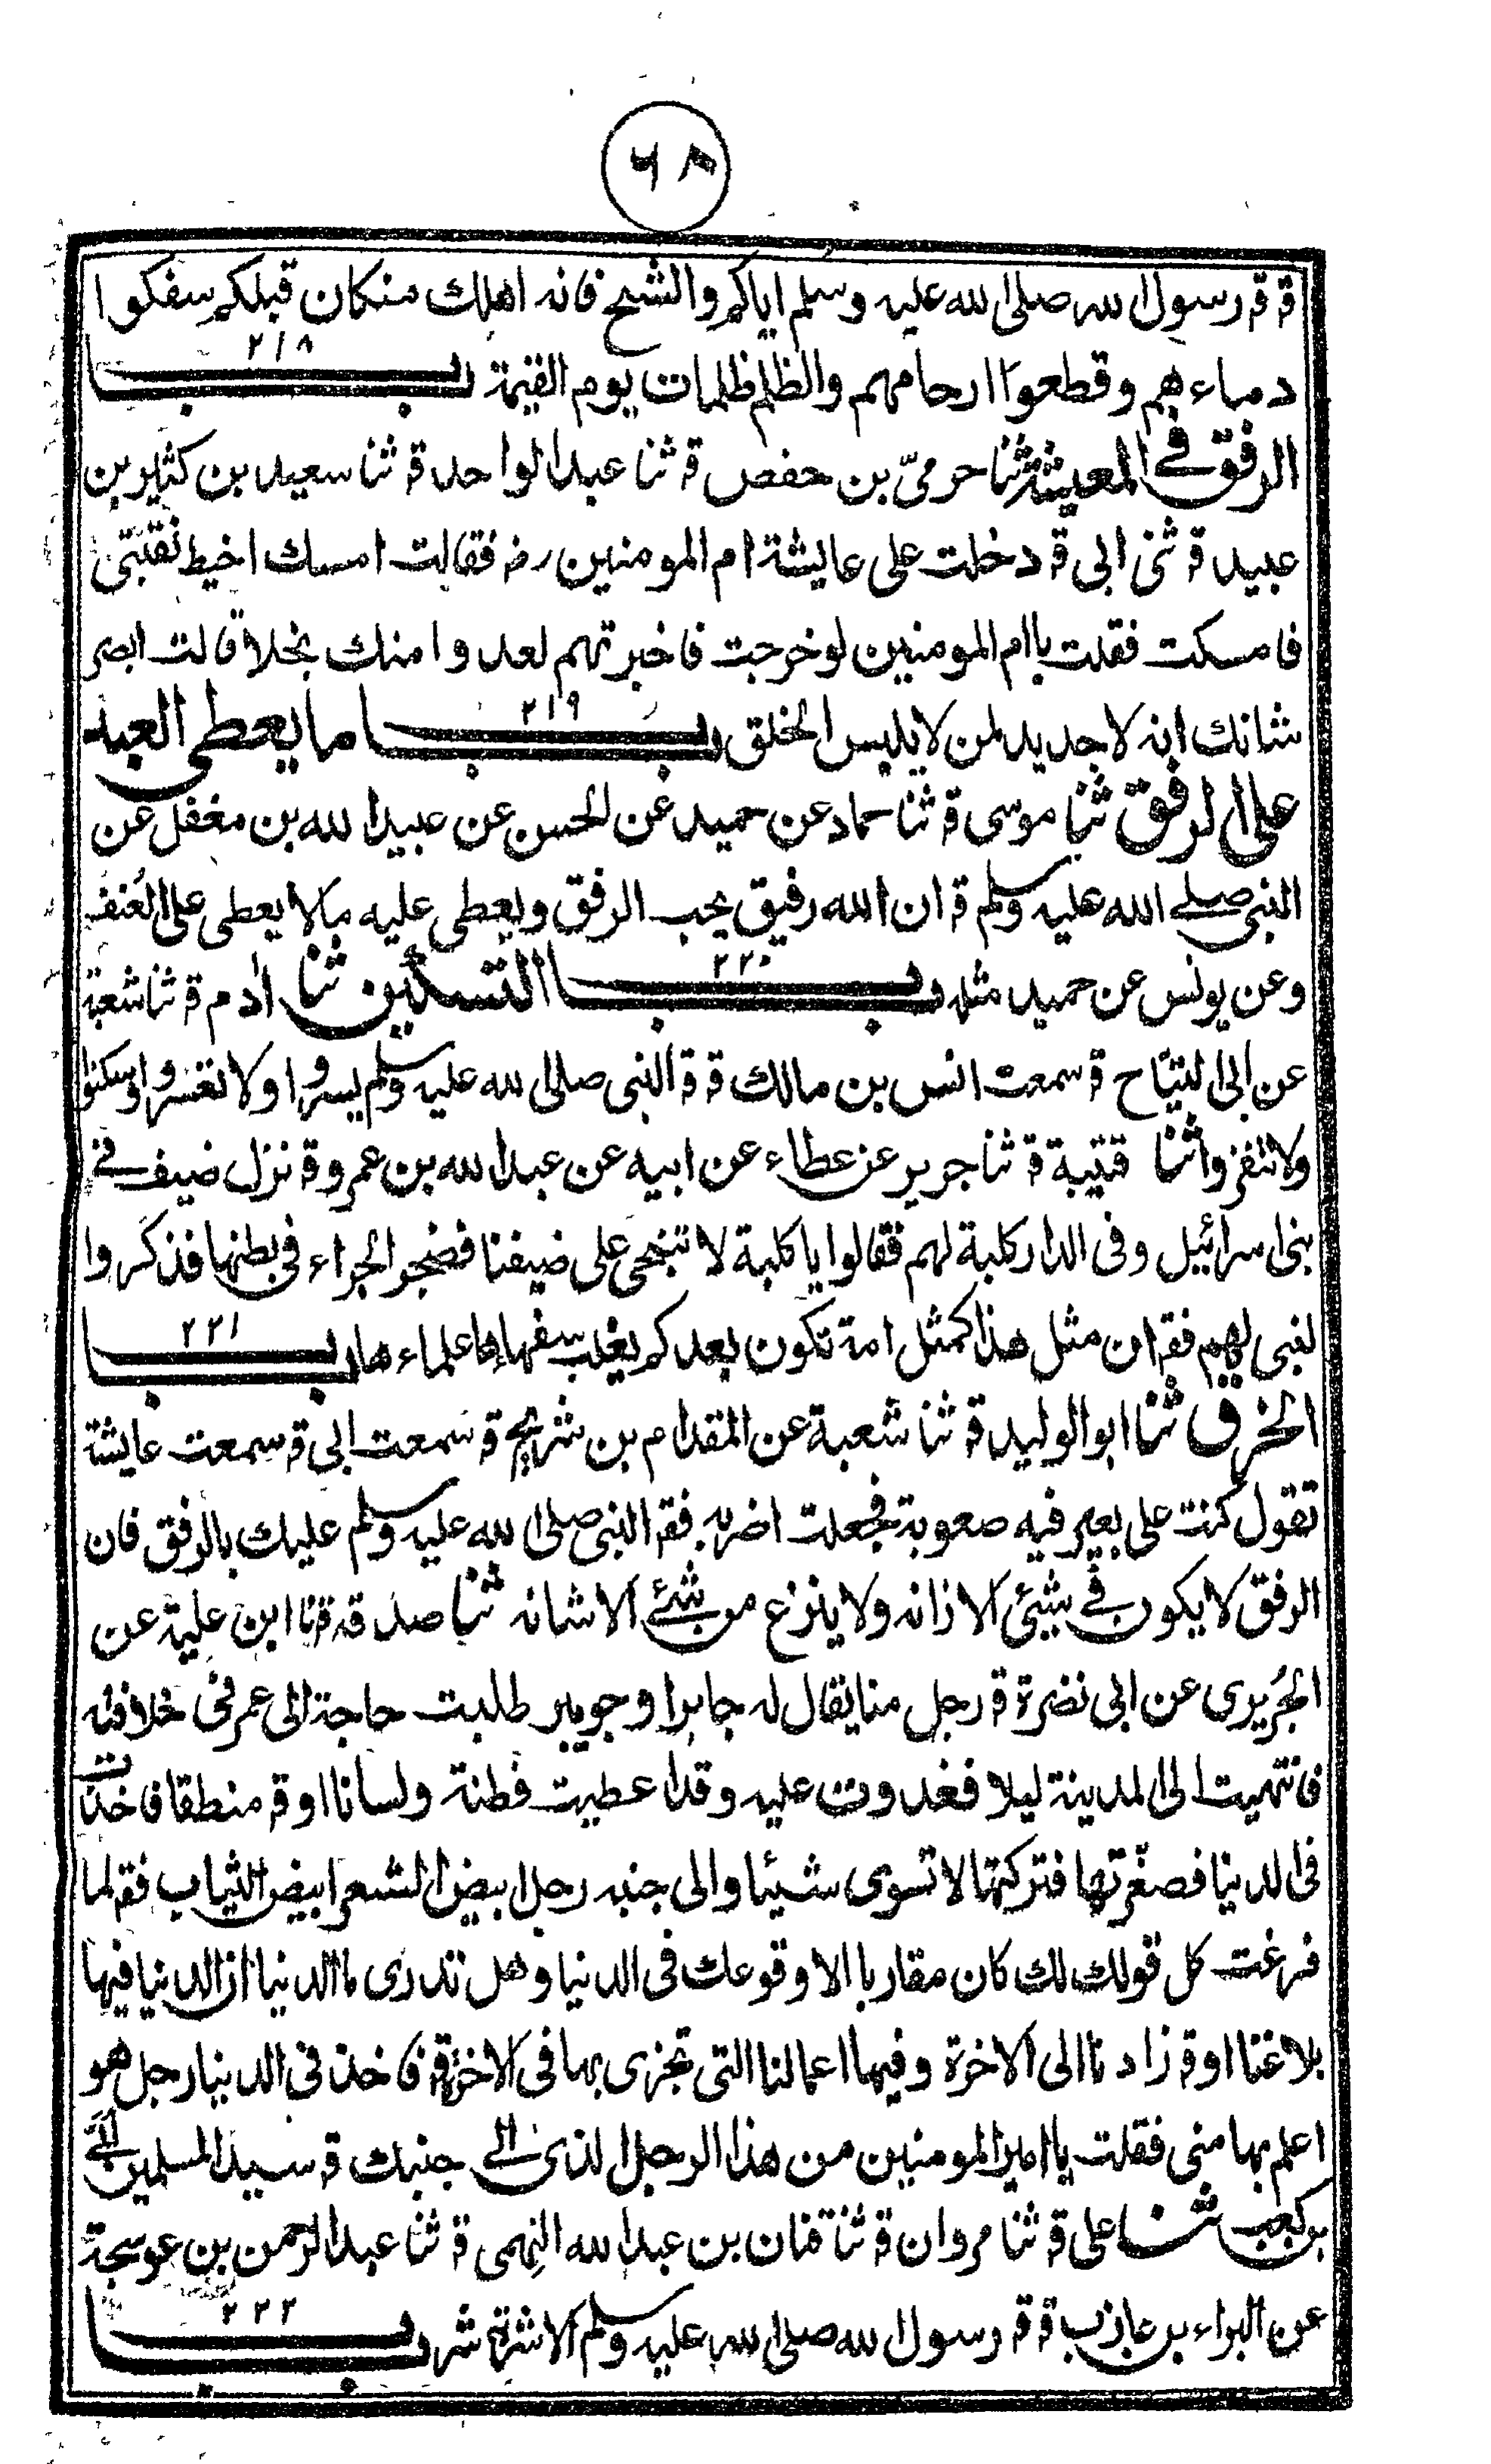 ٦٨
قة رسول الله صلى الله عليه وسلم اياكم والشح فانه اهلك منكان قبلكم سفكوا
دماءهم وقطعوا ارحامهم والظلم ظلمات يوم القيمة باب ٢١٨
الرفق في المعيشة ثنا حرميّ بن حفص قة ثنا عبد الواحد قة ثنا سعيد بن كثير بن
عبيد قة ثنى ابى قة دخلت على عايشة ام المومنين رض فقالت امسك اخيط نقبتى
فامسكت فقلت يا ام المومنين لو خرجت فاخبرتهم لعدوا منك بخلا قالت ابصر
شانك انه لا جديد لمن لا يلبس الخلق باب ٢١٩ ما يعطى العبد
على الرفق ثنا موسى قة ثنا حماد عن حميد عن الحسن عن عبيد الله بن مغفل عن
النبى صلى الله عليه وسلم قة ان الله رفيق يحب الرفق ويعطى عليه مالا يعطى على العُنف
وعن يونس عن حميد مثله باب ٢٢٠ التسكين ثنا ادم قة ثنا شعبة
عن ابى التيّاح قة سمعت انس بن مالك قة قة النبى صلى الله عليه وسلم يسروا ولا تعسروا وسكنوا
ولا تنفروا ثنا قتيبة قة ثنا جرير عن عطاء عن ابيه عن عبد الله بن عمرو قة نزل ضيف في
بنى اسرائيل وفى الدار كلبة لهم فقالوا يا كلبة لا تنبحى على ضيفنا فضحو الجراء فى بطنها فذكروا
لنبى لهم فقة ان مثل هذا كمثل امة تكون بعدكم يغلب سفهاءها علماءها باب ٢٢١
الخرق ثنا ابو الوليد قة ثنا شعبة عن المقدام بن شريح قة سمعت ابى قة سمعت عايشة
تقول كنت على بعير فيه صعوبة فجعلت اضربه فقة النبى صلى الله عليه وسلم عليك بالرفق فان
الرفق لا يكون في شيئ الا زانه ولا ينزع من شئ الا شانه ثنا صدقة قة انا ابن علية عن
الجُريرى عن ابى نضرة قة رجل منا يقال له جابر او جويبر طلبت حاجة الى عمر فى خلافته
فانتهيت الى المدينة ليلا فغدوت عليه وقد اعطيت فطنة ولسانا اوقة منطقا فاخذت
فى الدنيا فصغّرتها فتركتها لا تسوى شيئا والى جنبه رجل ابيض الشعر ابيض الثياب فقة لما
فرغت كل قولك لك كان مقاربا الا وقوعك فى الدنيا وهل تدرى ما الدنيا ان الدنيا فيها
بلاغنا اوقة زادنا الى الاخرة وفيها اعمالنا التى تجزى بها فى الاخرة قة فاخذ فى الدنيا رجل هو
اعلم بها منى فقلت يا امير المومنين من هذا الرجل الذى الى جنبك قة سيد المسلمين ابى
بن كعب ثنا على قة ثنا مروان قة ثنا قنان بن عبد الله النهمى قة ثنا عبد الرحمن بن عوسجة
عن البراء بن عازب قة قة رسول الله صلى الله عليه وسلم الاشرة شر باب ٢٢٢